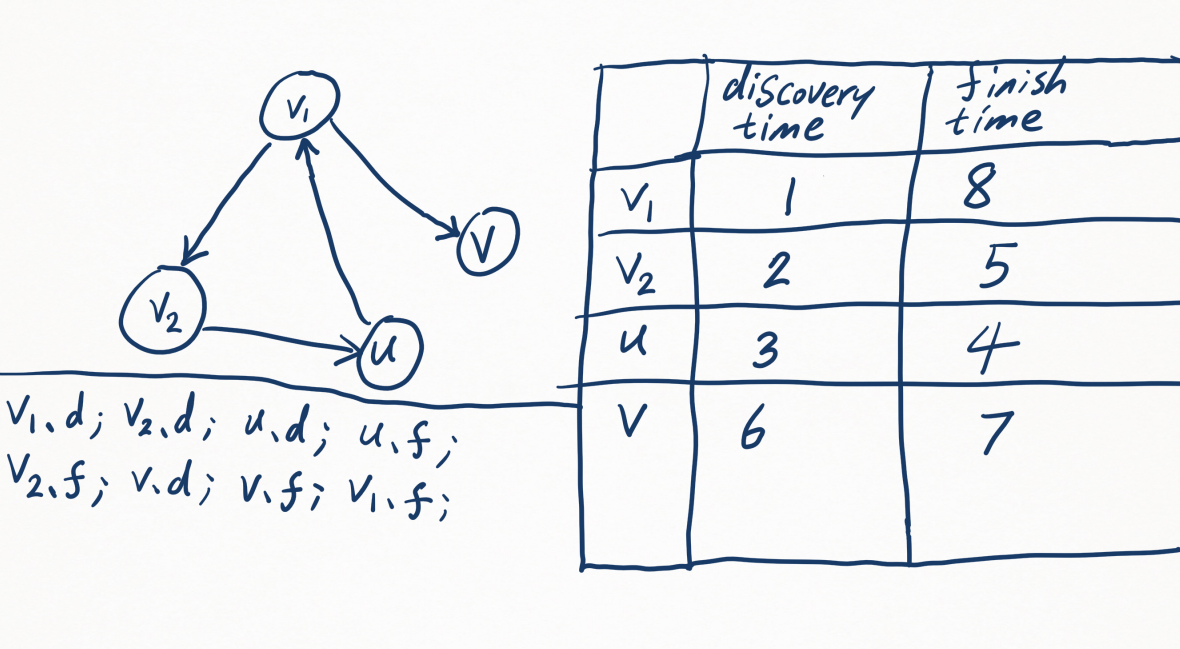 V₁
V
V₂
u
V₁.d; V₂.d; u.d; u.f;
V₂.f; V.d; V.f; V₁.f;
discovery time finish time
V₁ 1 8
V₂ 2 5
u 3 4
V 6 7